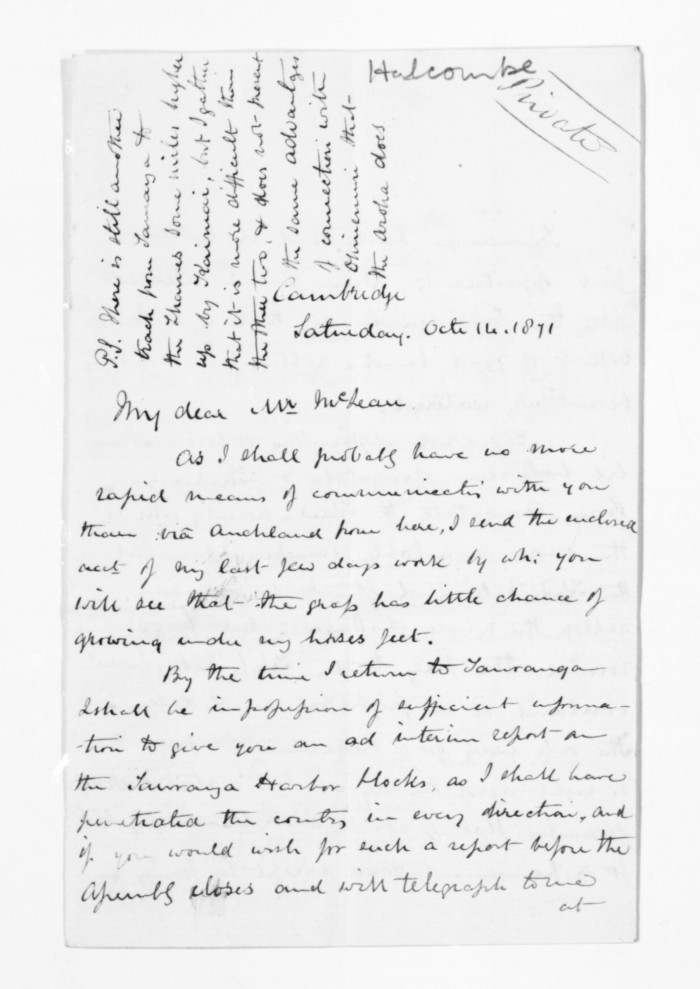 Halcombe
Private
P.S. There is still another
track from Tauranga to
the Thames some miles higher
up by Kaimai, but I gather
that it is more difficult than
the other two, & does not present
the same advantages
of connection with
Ohinemuri that
the Aroha does
Cambridge
Saturday. Octr 14. 1871
My dear Mr McLean
As I shall probably have no more
rapid means of communicatn with you
than via Auckland from here, I send the enclosed
acct of my last few days work by whi you
will see that the grass has little chance of
growing under my horses feet.
By the time I return to Tauranga
I shall be in possession of sufficient informa-
tion to give you an ad interim report on
the Tauranga Harbor blocks, as I shall have
penetrated the country in every direction, and
if you would wish for such a report before the
Assembly closes and will telegraph to me
at